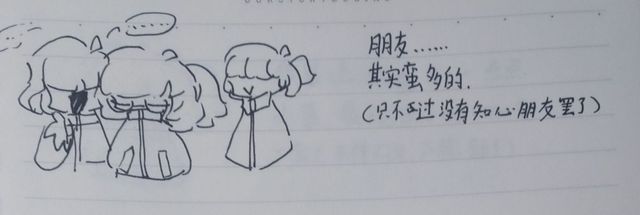 朋友……
其实蛮多的.
(只不过没有知心朋友罢了)